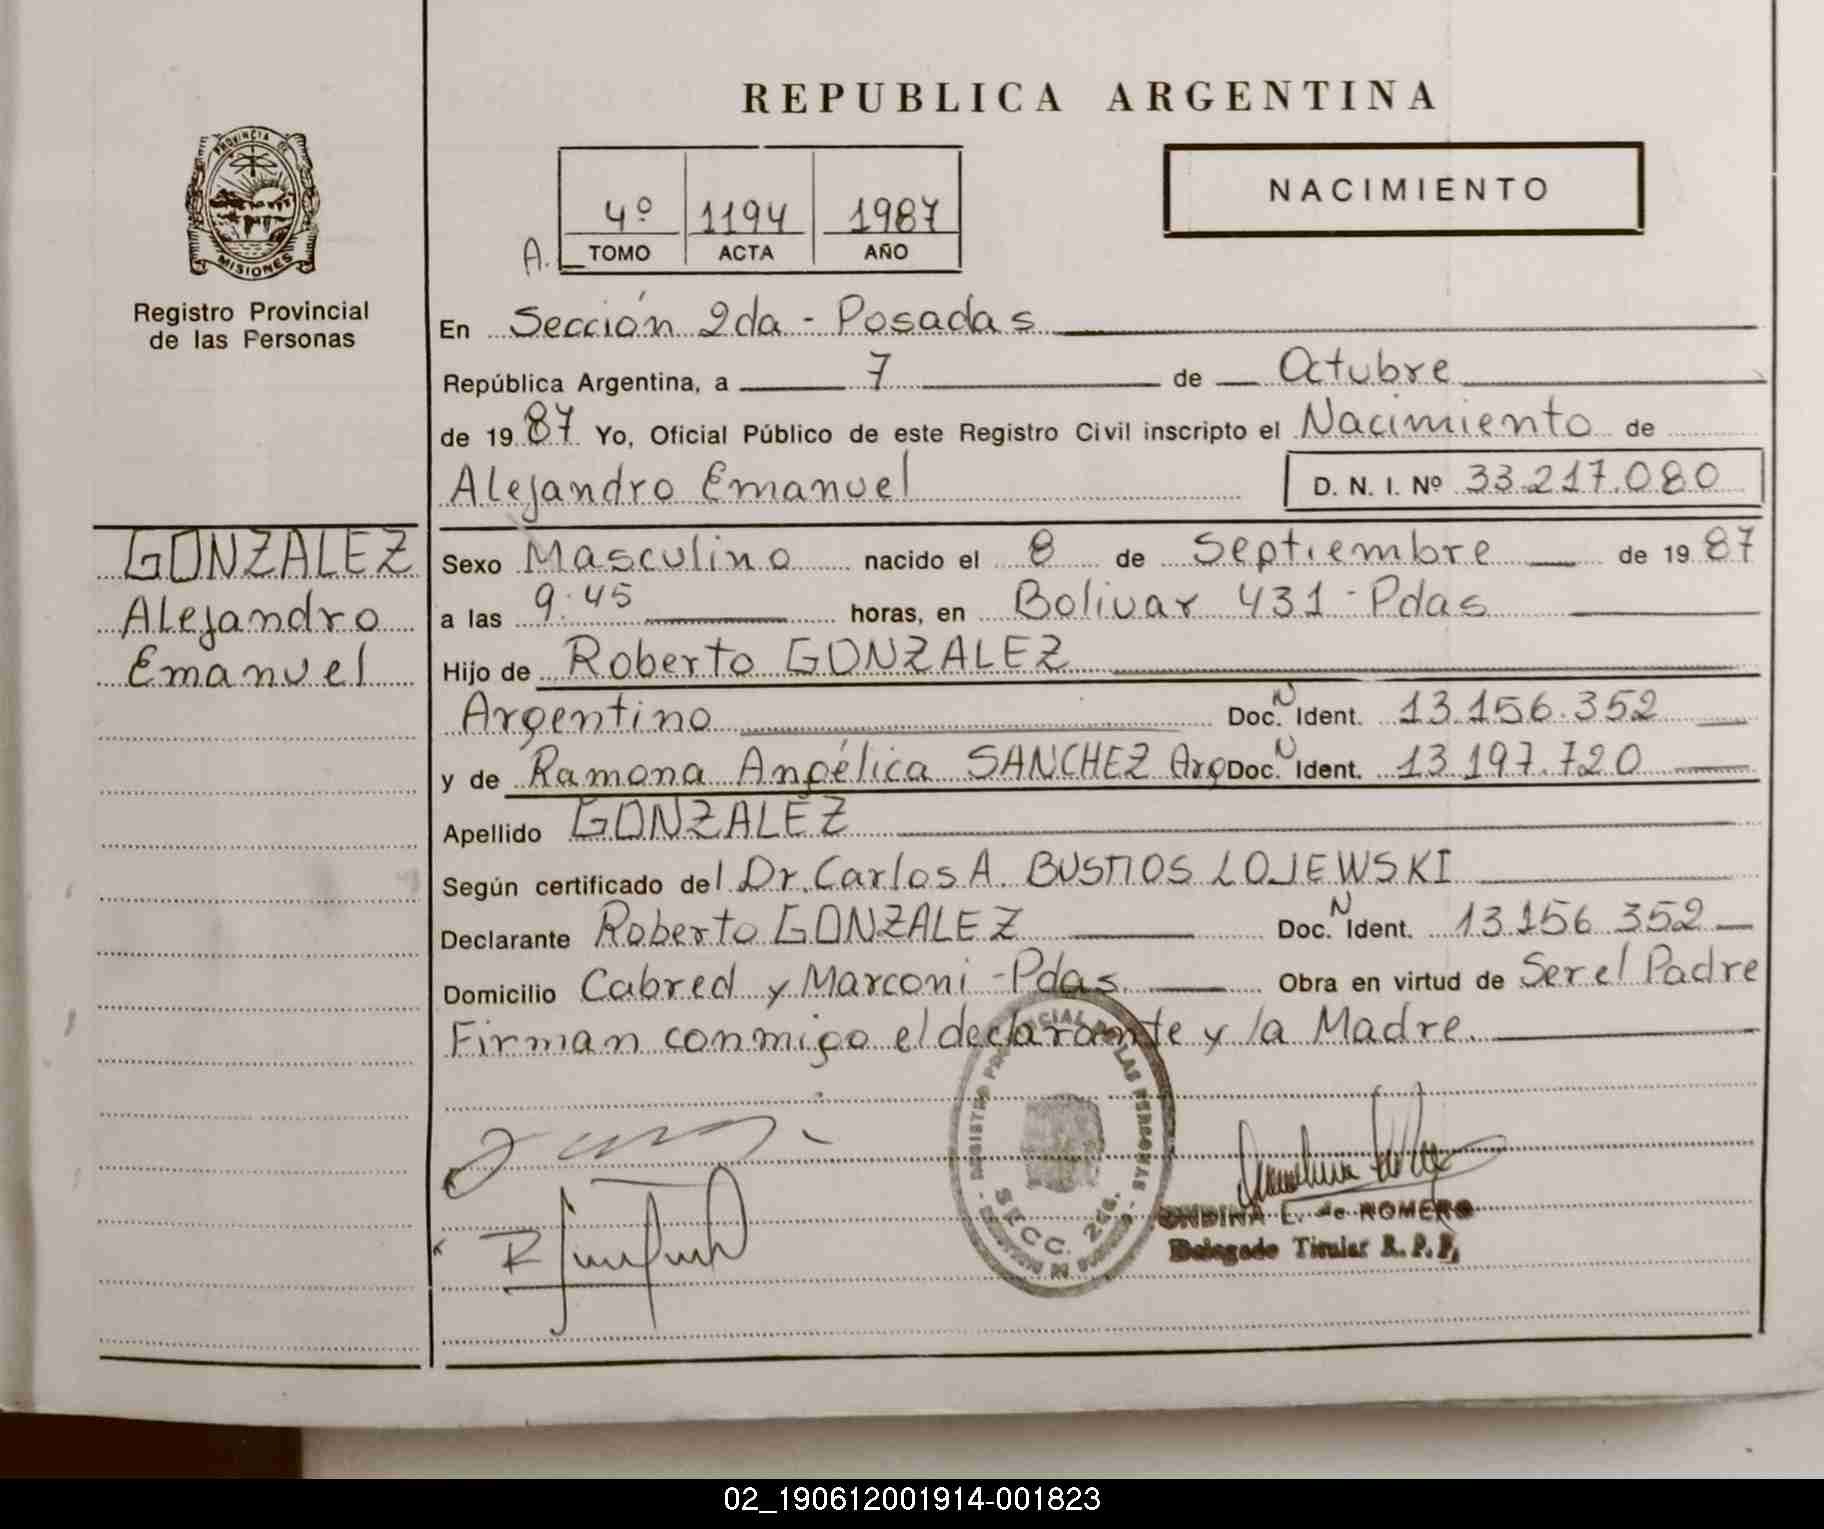 REPUBLICA ARGENTINA
PROVINCIA DE
MISIONES
Registro Provincial
de las Personas
NACIMIENTO
4º 1194 1987
A. TOMO ACTA AÑO
En Sección 2da - Posadas
República Argentina, a 7 de Octubre
de 1987 Yo, Oficial Público de este Registro Civil inscripto el Nacimiento de
Alejandro Emanuel D. N. I. Nº 33.217.080
GONZALEZ
Alejandro
Emanuel
Sexo Masculino nacido el 8 de Septiembre de 1987
a las 9.45 horas, en Bolivar 431 - Pdas
Hijo de Roberto GONZALEZ
Argentino Doc. N Ident. 13.156.352
y de Ramona Angélica SANCHEZ Arg Doc. N Ident. 13.197.720
Apellido GONZALEZ
Según certificado del Dr. Carlos A. BUSTTOS LOJEWSKI
Declarante Roberto GONZALEZ Doc. N Ident. 13.156.352
Domicilio Cabred y Marconi - Pdas Obra en virtud de Ser el Padre
Firman conmigo el declarante y la Madre.
REGISTRO PROVINCIAL DE LAS PERSONAS
SECC. 2da.
ONDINA E. de ROMERO
Delegado Titular R. P. P.
02_190612001914-001823